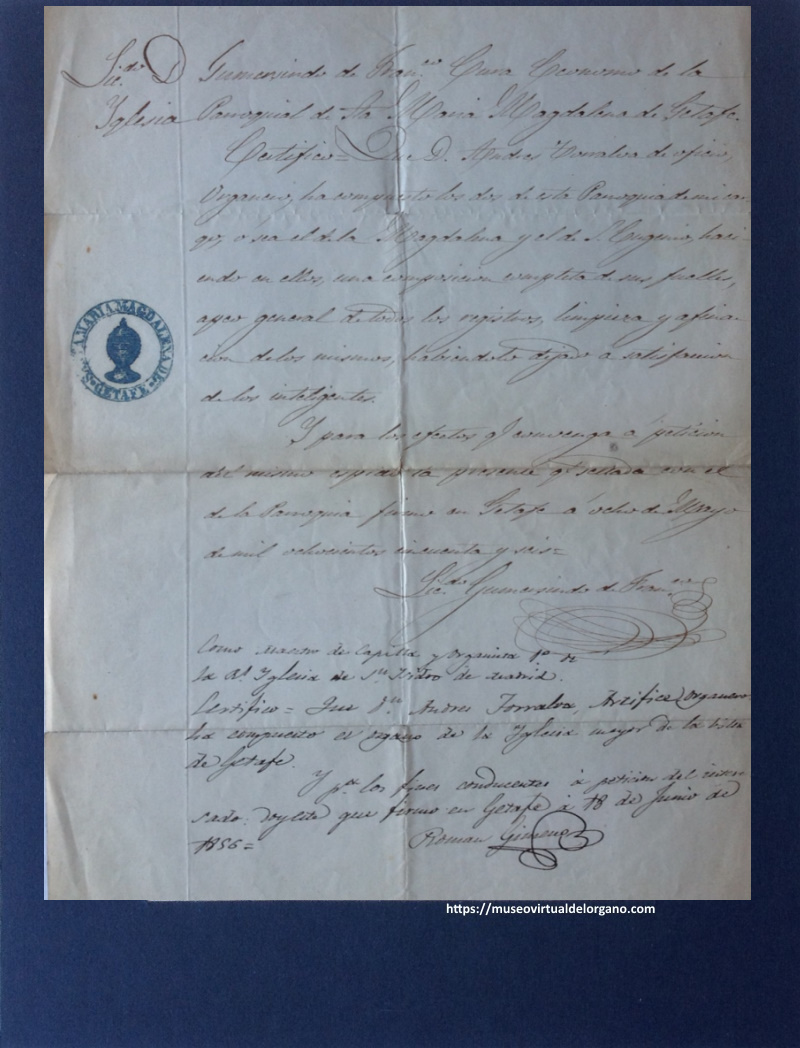 Lic.do D Gumersindo de Fran.co Cura Economo de la
Iglesia Parroquial de Sta Maria Magdalena de Getafe.
Certifico= Que D. Andres Torralva de oficio,
Organero, ha compuesto los dos de esta Parroquia de mi car-
go, o sea el de la Magdalena y el de S. Eugenio, haci-
endo en ellos, una composicion completa de sus fuelles,
apeo general de todos los registros, limpieza y afina-
cion de los mismos, habiendolo dejado a satisfaccion
de los inteligentes.
Y para los efectos q.e convenga a peticion
del mismo espido la presente q.e sellada con el
de la Parroquia firmo en Getafe á ocho de Mayo
de mil ochocientos cincuenta y seis=
Lic.do Gumersindo de Fran.co
STA MARIA MAGDALENA DE GETAFE
Como Maestro de Capilla y organista 1º de
la Rl Iglesia de Sn Isidro de Madrid.
Certifico= Que Dn Andres Torralva, Artifice organero
ha compuesto el organo de la Iglesia mayor de la Villa
de Getafe.
Y pa los fines conducentes á peticion del intere-
sado, doy este que firmo en Getafe á 18 de Junio de
1856=
Roman Gimeno
https://museovirtualdelorgano.com